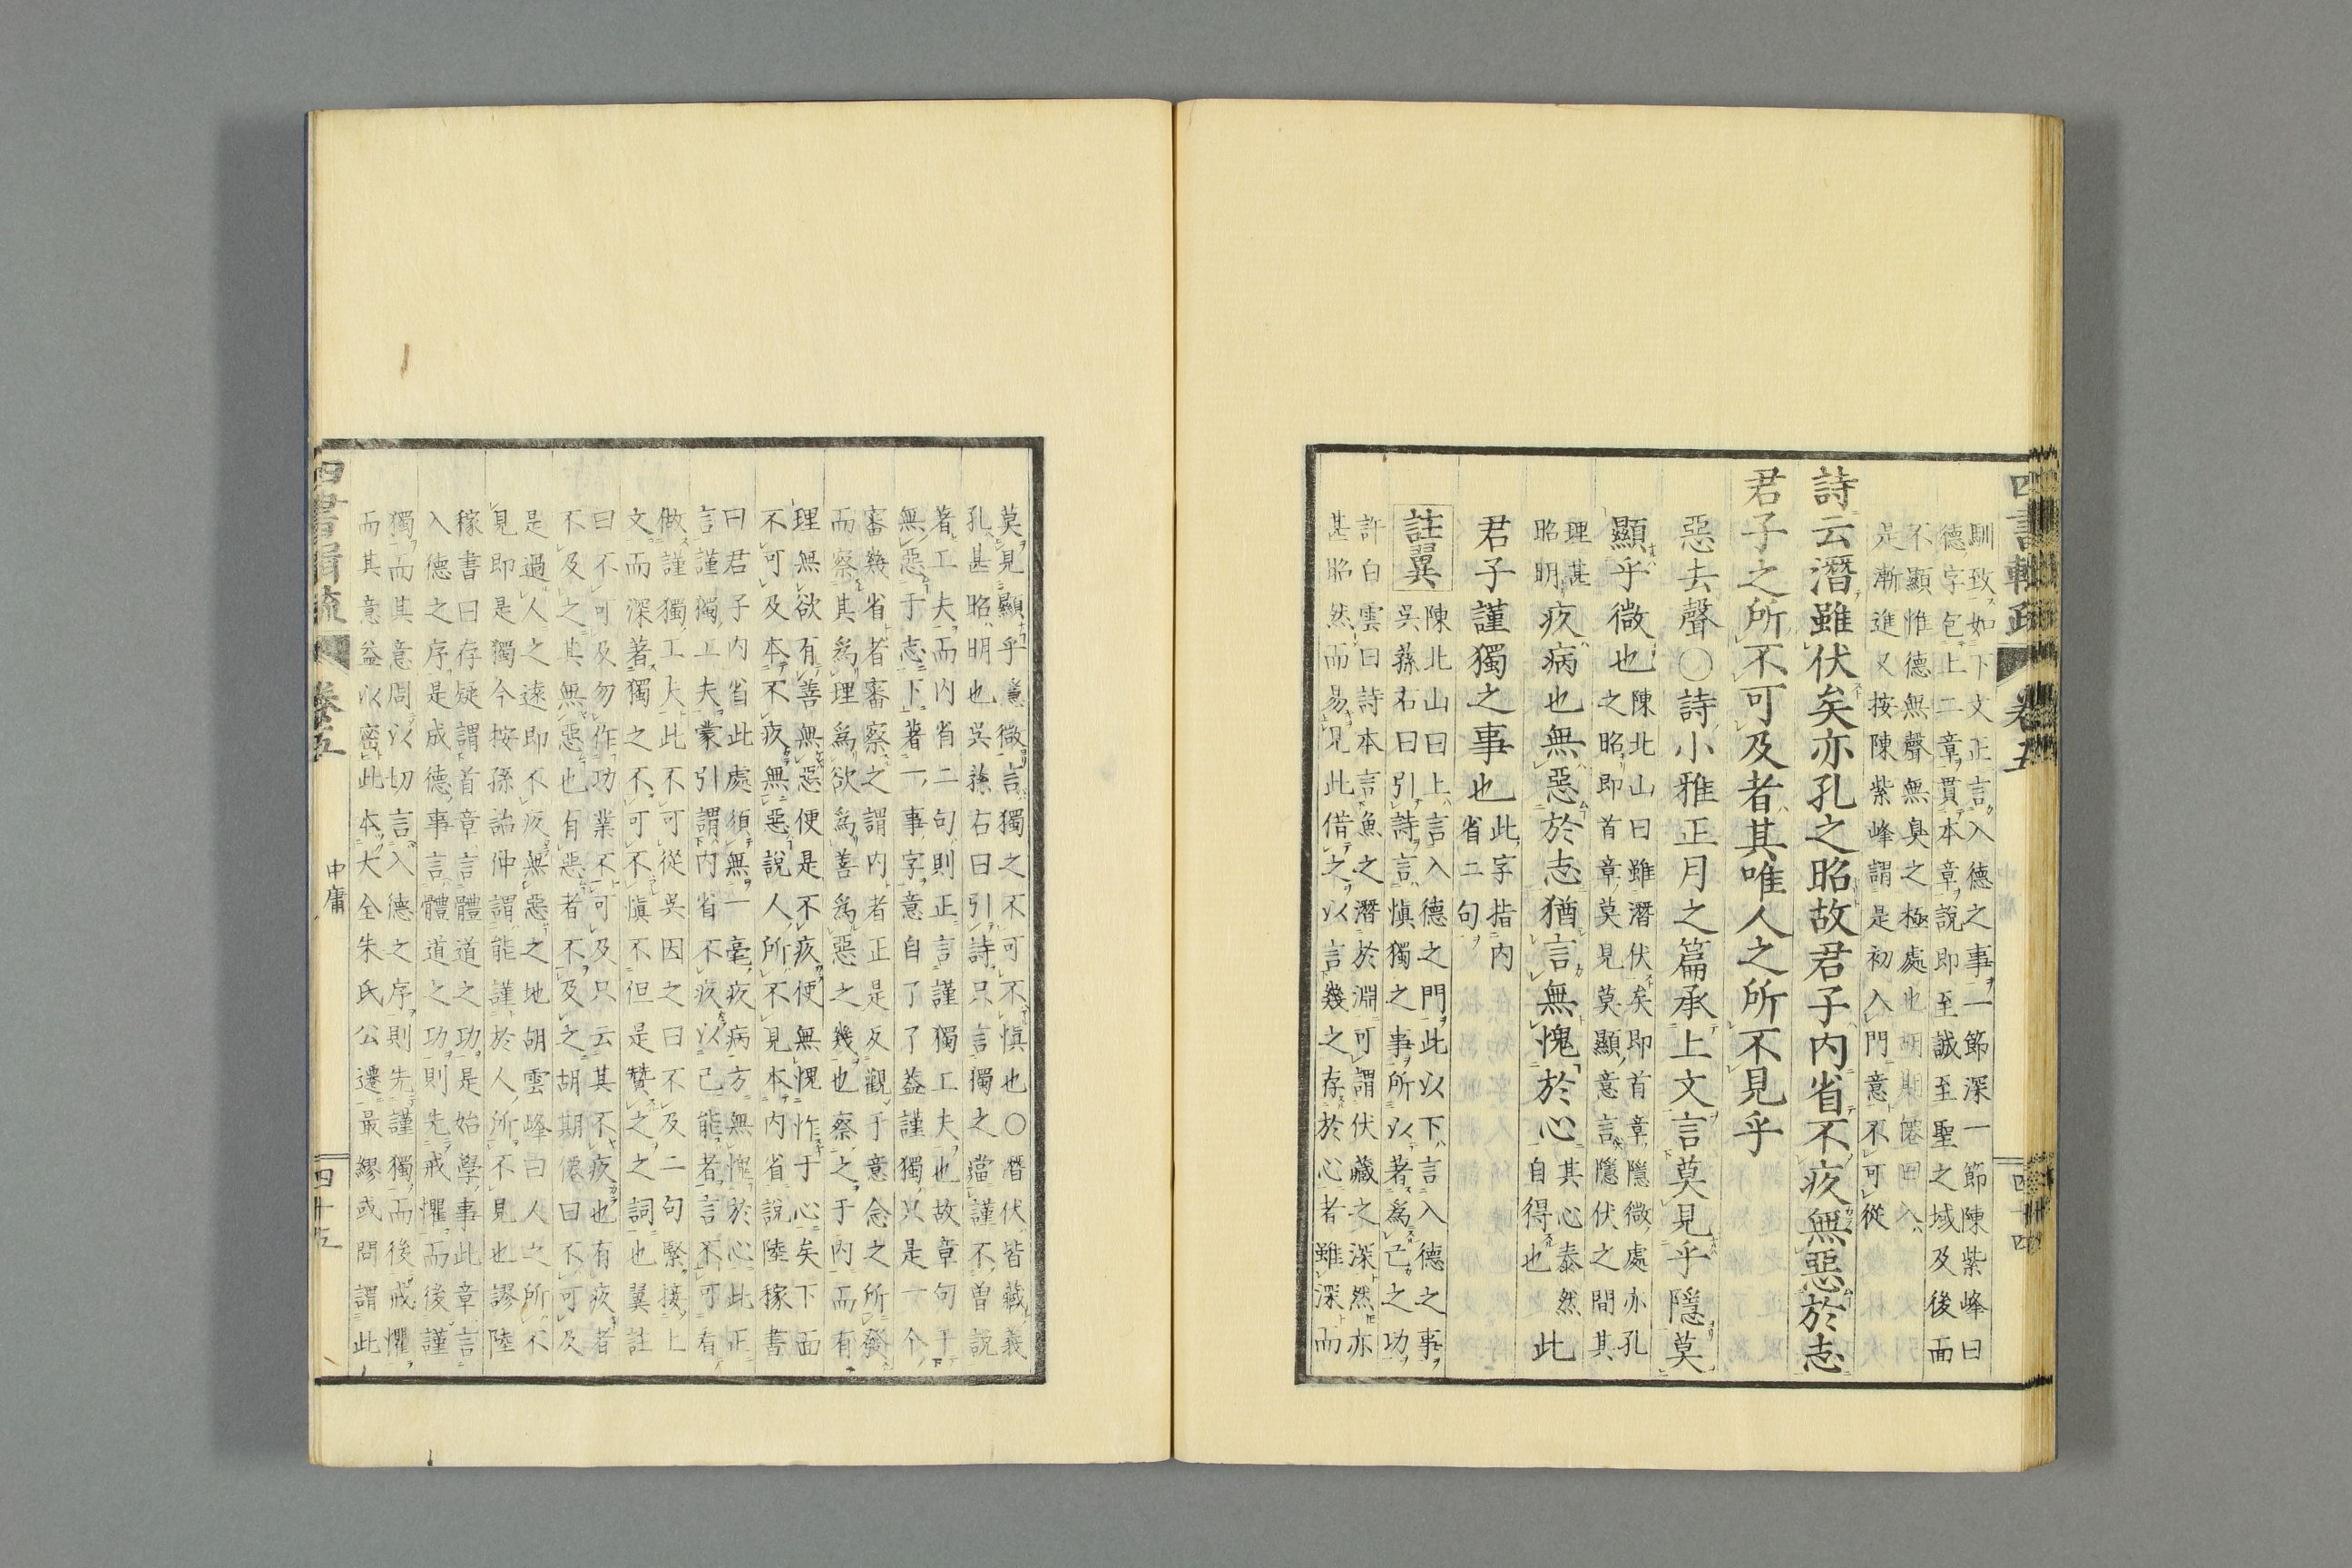 四書輯疏
卷五
四十四
馴致如下文正言入德之事一節深一節陳紫峰曰
德字包上二章貫本章說即至誠至聖之域及後面
不顯惟德無聲無臭之極處也胡期僊曰入
是漸進又按陳紫峰謂是初入門意不可從
詩云潛雖伏矣亦孔之昭故君子內省不疚無惡於志
君子之所不可及者其唯人之所不見乎
惡去聲〇詩小雅正月之篇承上文言莫見乎隱莫
顯乎微也
陳北山曰雖潛伏矣即首章隱微處亦孔
之昭即首章莫見莫顯意言隱伏之間其
理甚
昭明
疚病也無惡於志猶言無愧於心
其心泰然
自得也
此
君子謹獨之事也
此字指內
省二句
註翼
陳北山曰上言入德之門此以下言入德之事
吳蓀右曰引詩言慎獨之事所以著為己之功
許白雲曰詩本言魚之潛於淵可謂伏藏之深然亦
甚昭然而易見此借之以言幾之存於心者雖深而
莫見顯乎隱微言獨之不可不慎也〇潛伏皆藏義
孔甚昭明也吳蓀右曰引詩只言獨之當謹不曾說
著工夫而內省二句則正言謹獨工夫也故章句于
無惡于志下著一事字意自了了蓋謹獨只是一个
審幾省者審察之謂內者正是反觀于意念之所發
而察其為理為欲為善為惡之幾也察之于內而有
理無欲有善無惡便是不疚便無愧怍于心矣下面
不可及本不疚無惡說人所不見本內省說陸稼書
曰君子內省此處須無一毫疚病方無愧於心此正
言謹獨工夫蒙引謂內省不疚以己能者言不可有
做謹獨工夫此不可從吳因之曰不及二句緊接上
文而深著獨之不可不慎不但是贊之之詞也翼註
曰不可及勿作功業不可及只云其不疚也有疚者
不及之其無惡也有惡者不及之胡期僊曰不可及
是過人之遠即不疚無惡之地胡雲峰曰人之所不
見即是獨今按孫詒仲謂能謹於人所不見也謬陸
稼書曰存疑謂首章言體道之功是始學事此章言
入德之序是成德事言體道之功則先戒懼而後謹
獨而其意周以切言入德之序則先謹獨而後戒懼
而其意益以密此本大全朱氏公遷最繆或問謂此
四書輯疏
卷五
中庸
四十五